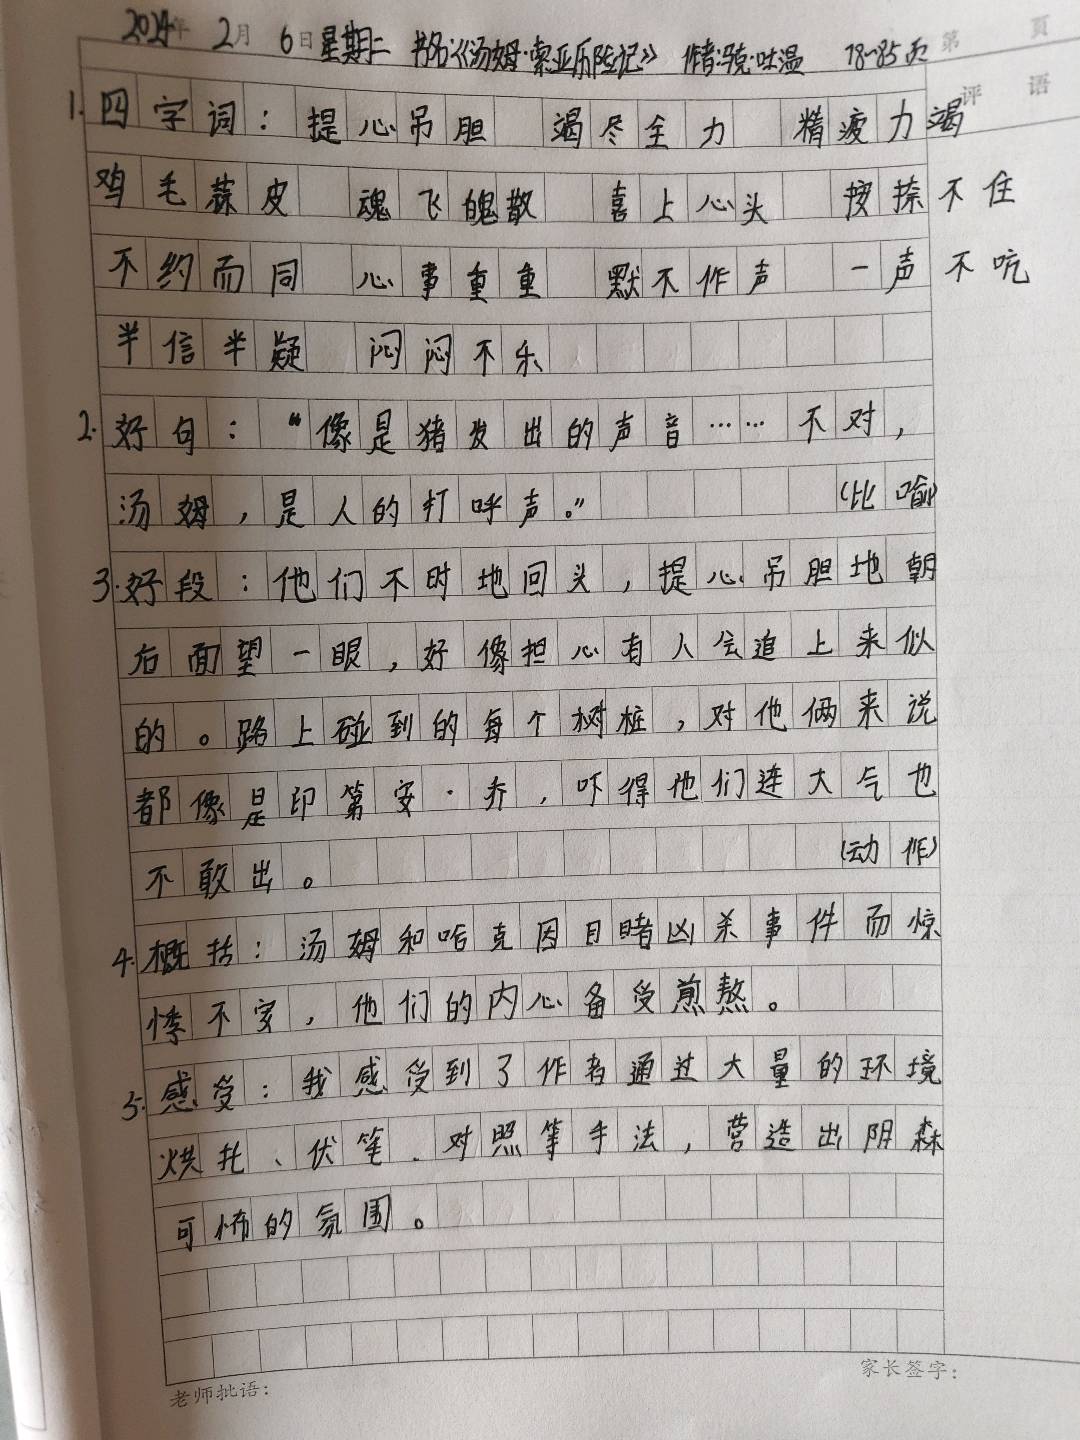 2024年 2月 6日 星期二 书名:《汤姆·索亚历险记》 作者:马克·吐温 78-85页 第 頁
评 语
1. 四字词：提心吊胆 竭尽全力 精疲力竭
鸡毛蒜皮 魂飞魄散 喜上心头 按捺不住
不约而同 心事重重 默不作声 一声不吭
半信半疑 闷闷不乐
2. 好句：“像是猪发出的声音……不对，
汤姆，是人的打呼声。” (比喻)
3. 好段：他们不时地回头，提心吊胆地朝
后面望一眼，好像担心有人会追上来似
的。路上碰到的每个树桩，对他俩来说
都像是印第安·乔，吓得他们连大气也
不敢出。 (动作)
4. 概括：汤姆和哈克因目睹凶杀事件而惊
悸不安，他们的内心备受煎熬。
5. 感受：我感受到了作者通过大量的环境
烘托、伏笔、对照等手法，营造出阴森
可怖的氛围。
家长签字：
老师批语：